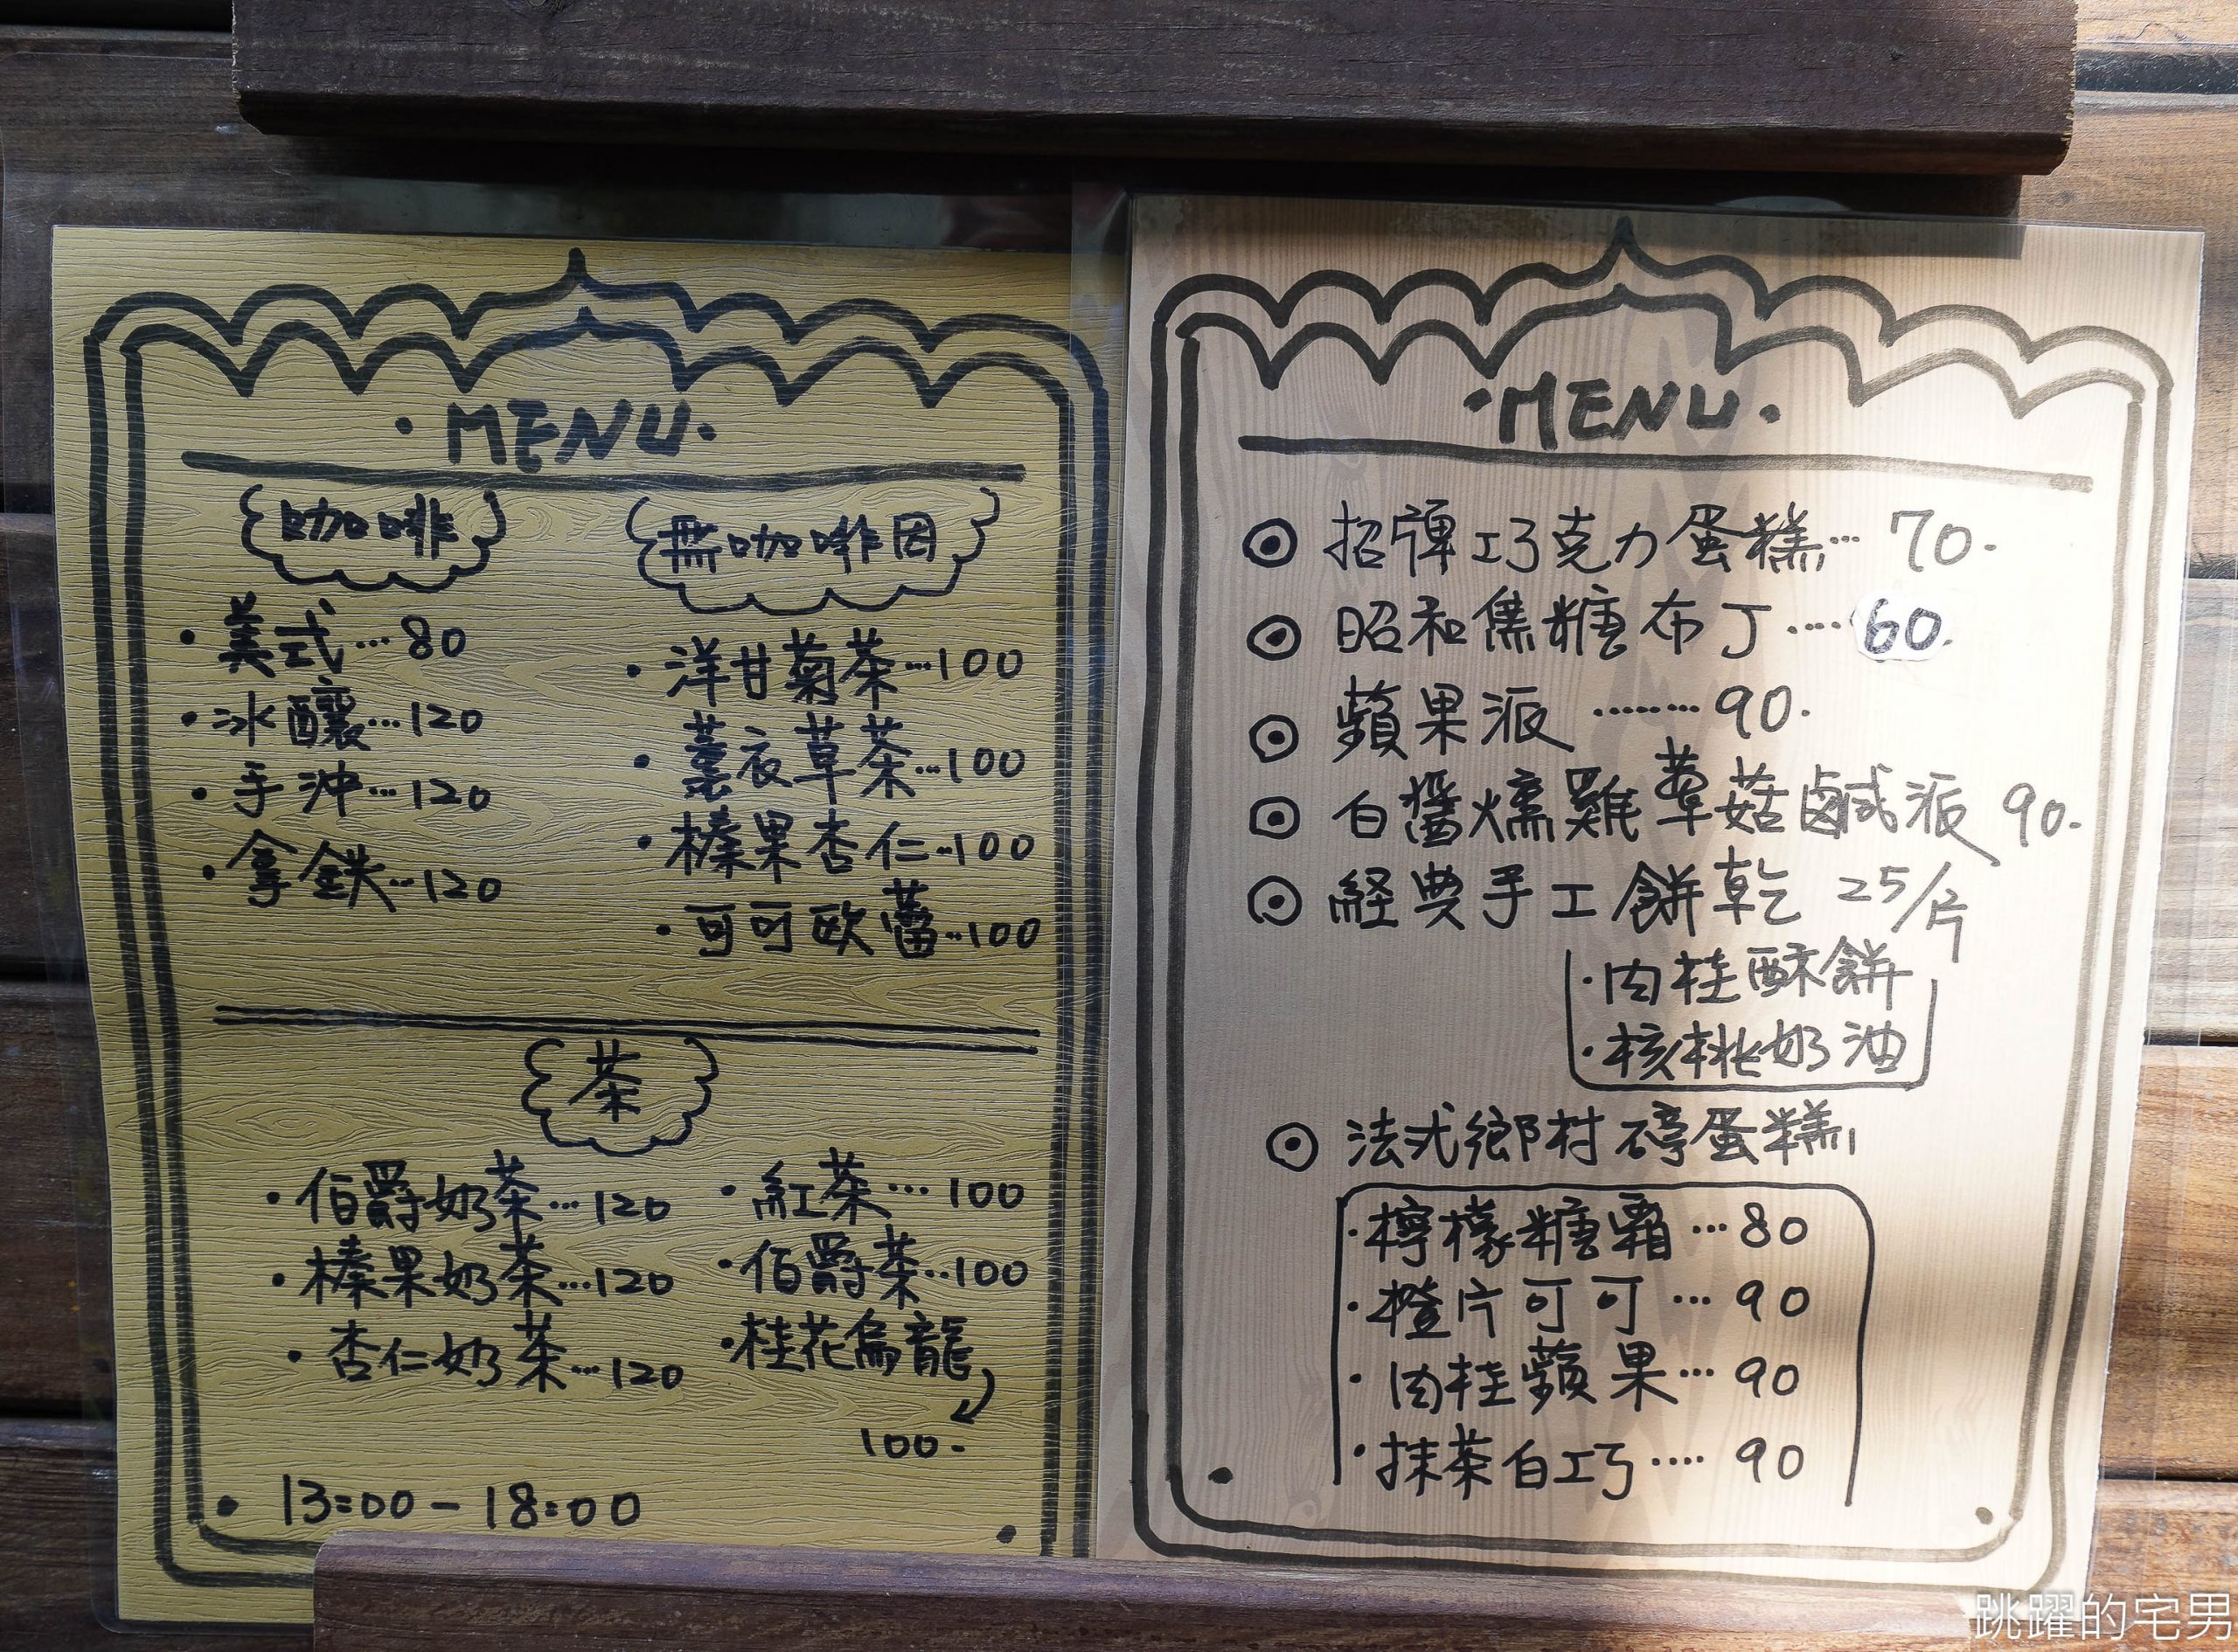 ·MENU·
咖啡
·美式…80
·冰釀…120
·手沖…120
·拿鉄…120
無咖啡因
·洋甘菊茶…100
·薰衣草茶…100
·榛果杏仁…100
·可可歐蕾…100
茶
·伯爵奶茶…120
·榛果奶茶…120
·杏仁奶茶…120
·紅茶…100
·伯爵茶…100
·桂花烏龍
100.
13:00-18:00
·MENU·
招牌巧克力蛋糕…70.
昭和焦糖布丁…60.
蘋果派……90.
白醬燻雞蕈菇鹹派 90.
経典手工餅乾 25/片
·肉桂酥餅
·核桃奶油
法式鄉村磅蛋糕
·檸檬糖霜…80
·橙片可可…90
·肉桂蘋果…90
·抹茶白巧….90
跳躍的宅男